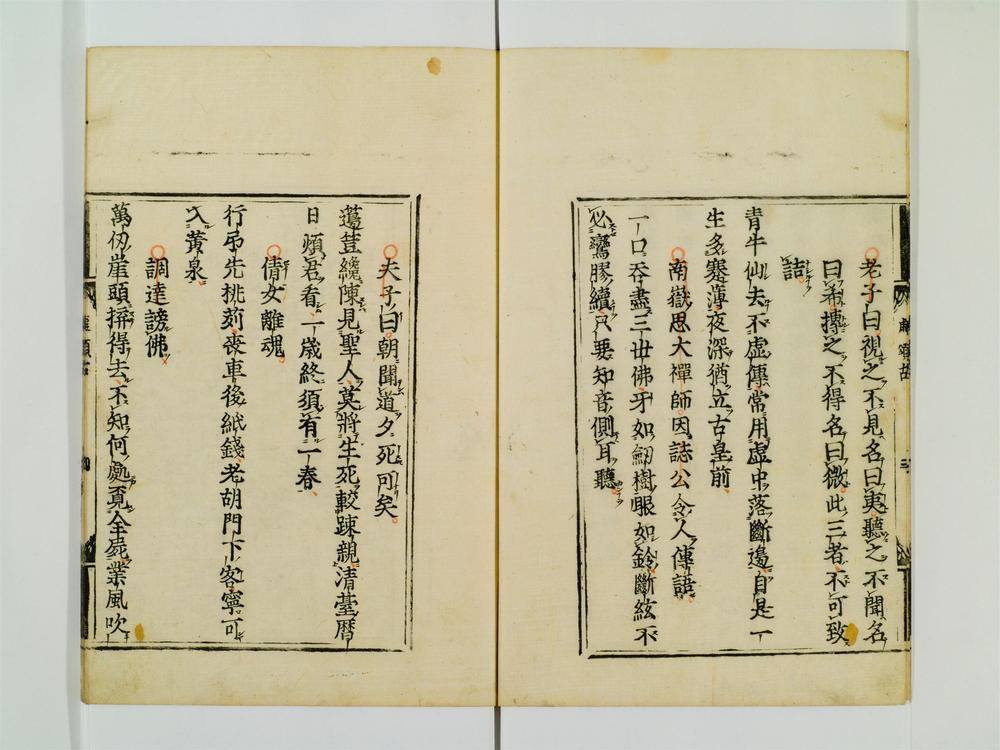 老子曰視之不見名曰夷聽之不聞名
曰希摶之不得名曰微此三者不可致
詰
青牛仙去不虛傳常用虛中落斷邊自是一
生多蹇薄夜深猶立古皇前
南嶽思大禪師因誌公令人傳語
一口吞盡三世佛牙如劒樹眼如鈴斷絃不
必鸞膠續只要知音側耳聽
夫子曰朝聞道夕死可矣
薹荳纔陳見聖人莫將生死較踈親清臺曆
日煩君看一歳終須有一春
倩女離魂
行吊先挑䓟喪車後紙錢老胡門下客寧可
入黃泉
調達謗佛
萬仞崖頭摒得去不知何處覓全屍業風吹